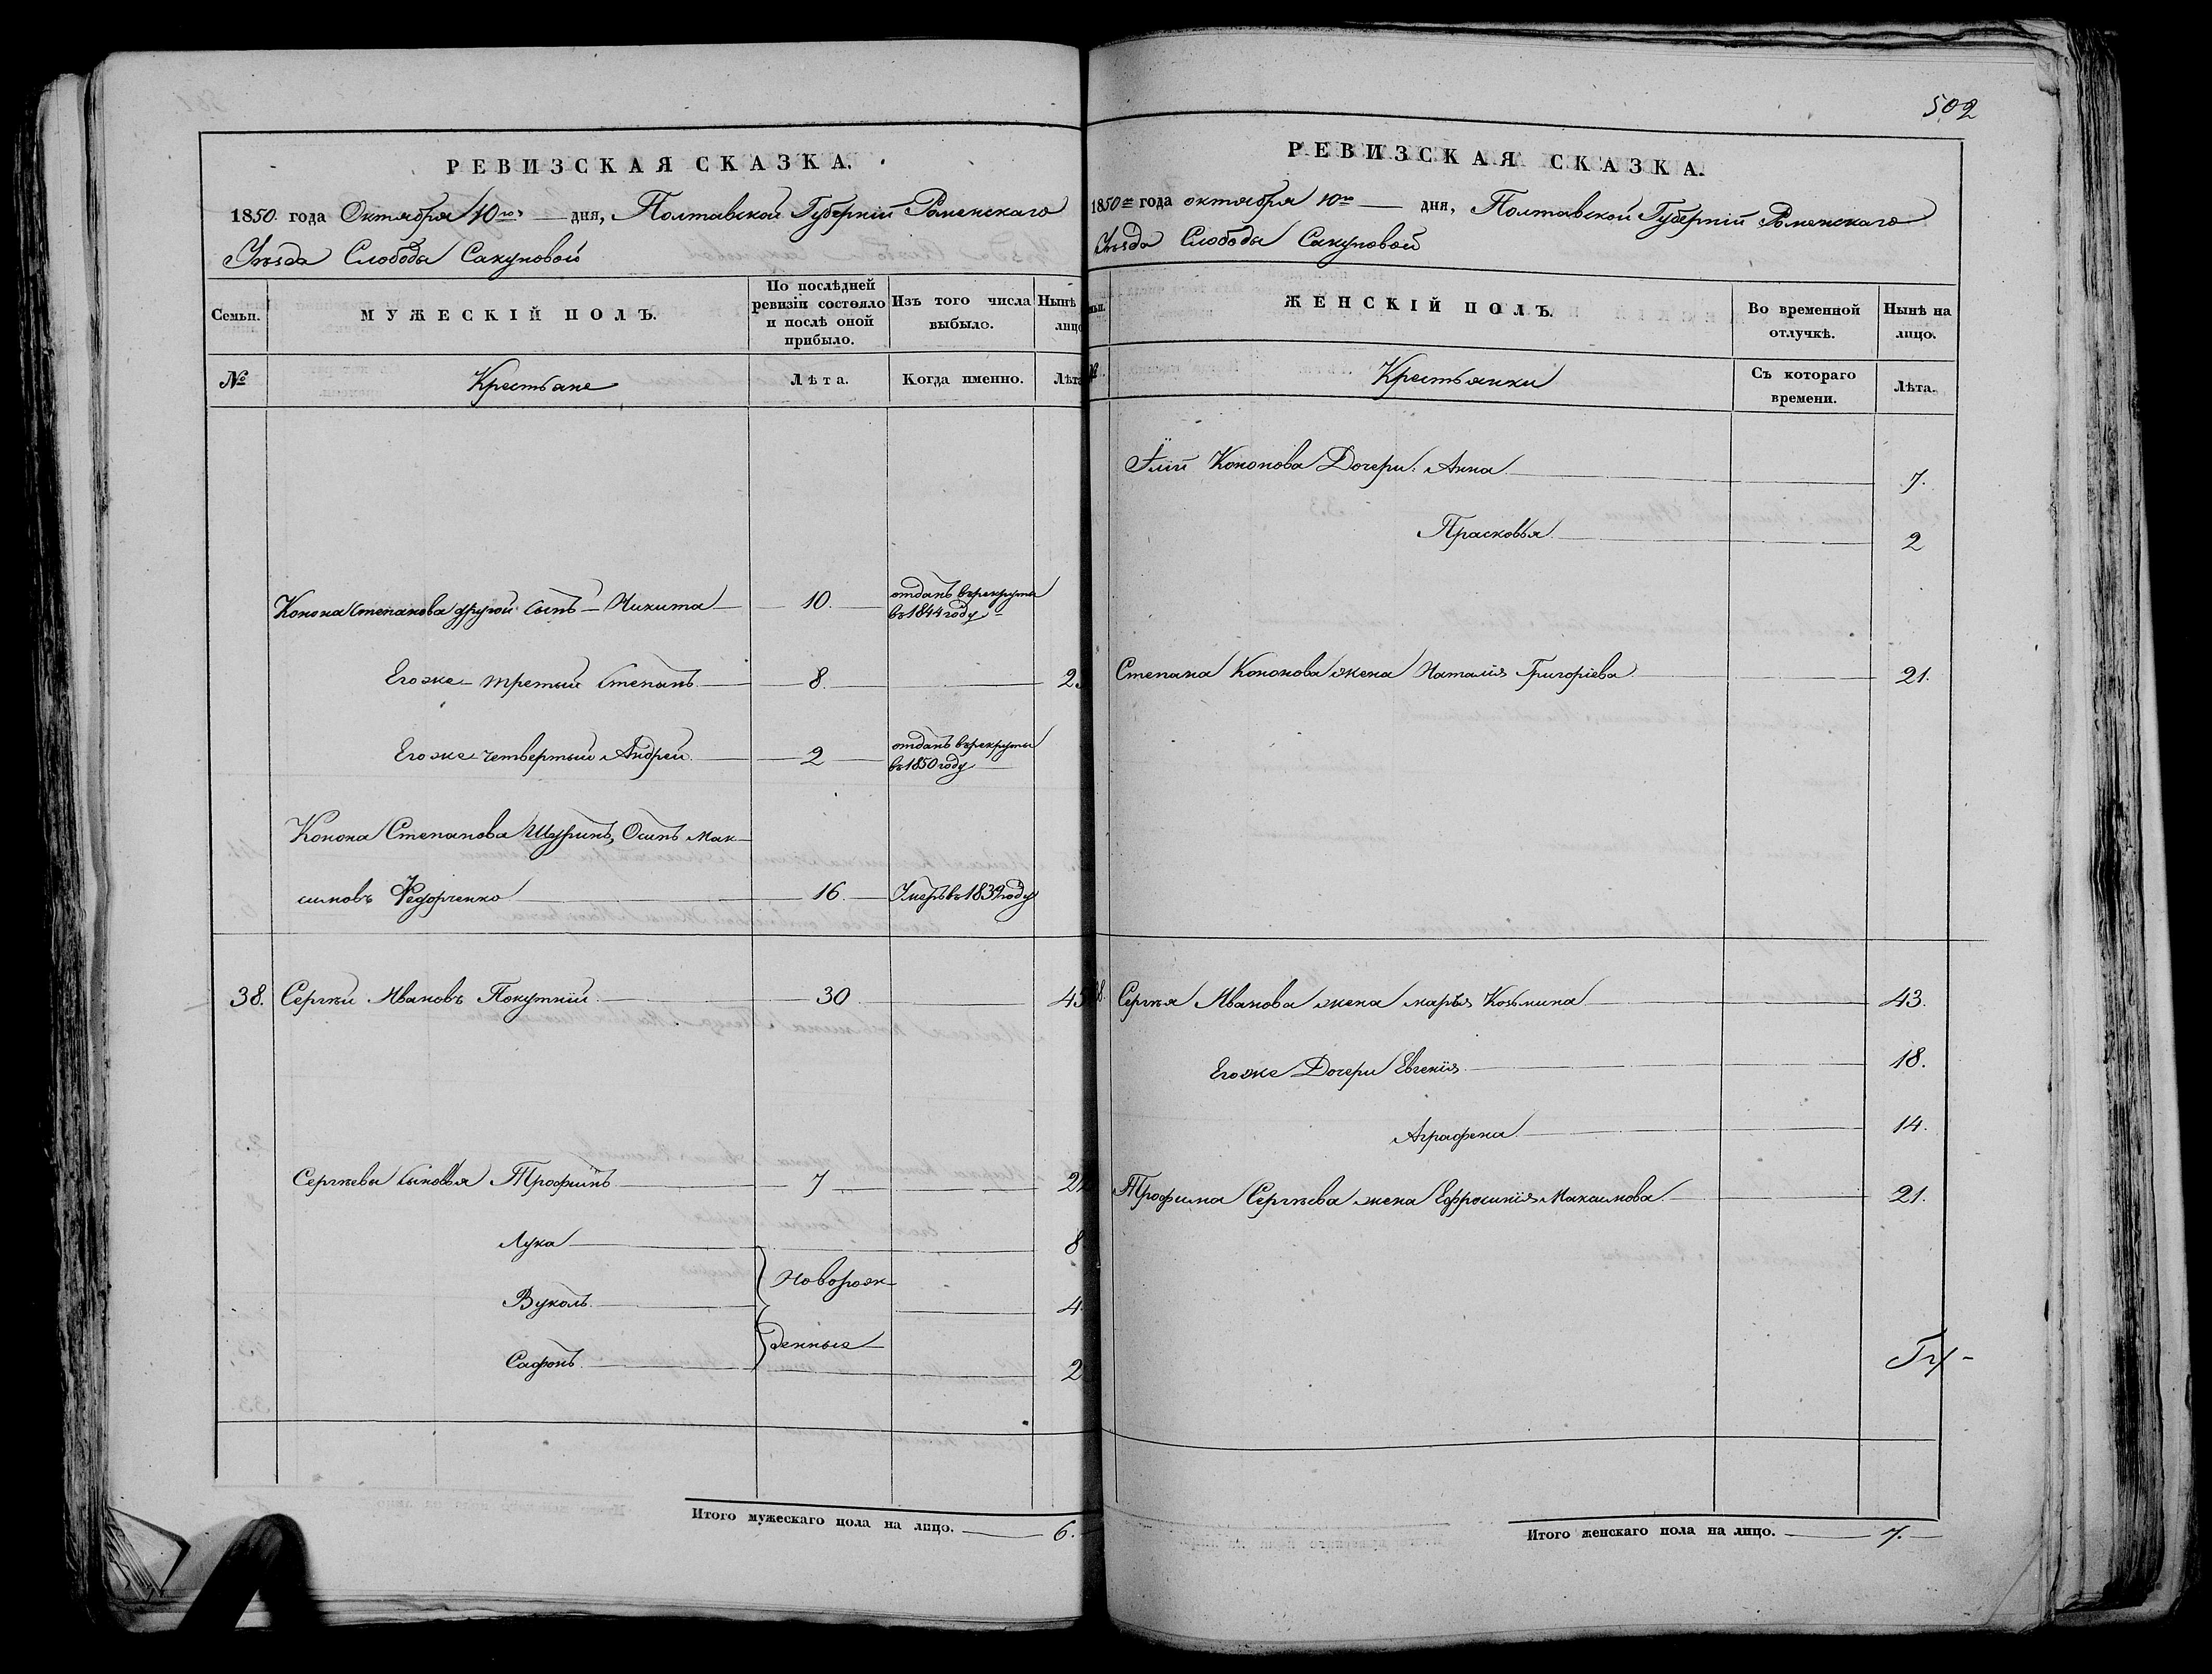 РЕВИЗСКАЯ СКАЗКА.
1850. года Октября 10го дня, Полтавской Губерніи Роменскаго
Уѣзда Слободы Сакуновой
Семьи.
МУЖЕСКІЙ ПОЛЪ.
По послѣдней
ревизіи состояло
и послѣ оной
прибыло.
Изъ того числа
выбыло.
Нынѣ
лицо
№
Крестьяне
Лѣта.
Когда именно.
Лѣта
Конона Степанова другой сынъ Никита 10. отданъ врекруты
въ 1844 году
Егоже третий Степанъ 8. 2
Егоже четвертый Андрей 2 отданъ врекруты
въ 1850 году
Конона Степанова Шуринъ, Осипъ Мак-
симовъ Федорченко 16. Умеръ въ 1839 году
38. Сергѣй Ивановъ Покутній 30 45
Сергѣева сыновья Трофимъ 7 22
Лука 8
Новорож-
Вуколъ 4
денные
Сафонъ 2
Итого мужескаго пола на лицо. 6.
502
РЕВИЗСКАЯ СКАЗКА.
1850го года октября 10го дня, Полтавской Губерніи Роменскаго
Уѣзда Слободы Сакуновой
мьи.
ЖЕНСКІЙ ПОЛЪ.
Во временной
отлучкѣ.
Нынѣ на
лицо.
Крестьянки
Съ котораго
времени.
Лѣта.
Кононова Дочери: Анна 7.
Прасковья 2
Степана Кононова жена Наталія Григоріева 21.
38. Сергѣя Иванова жена марья Козьмина 43.
Егоже Дочери Евгенія 18.
Аграфена 14.
Трофима Сергѣева жена Ефросинія Максимова 21.
Итого женскаго пола на лицо. 7.